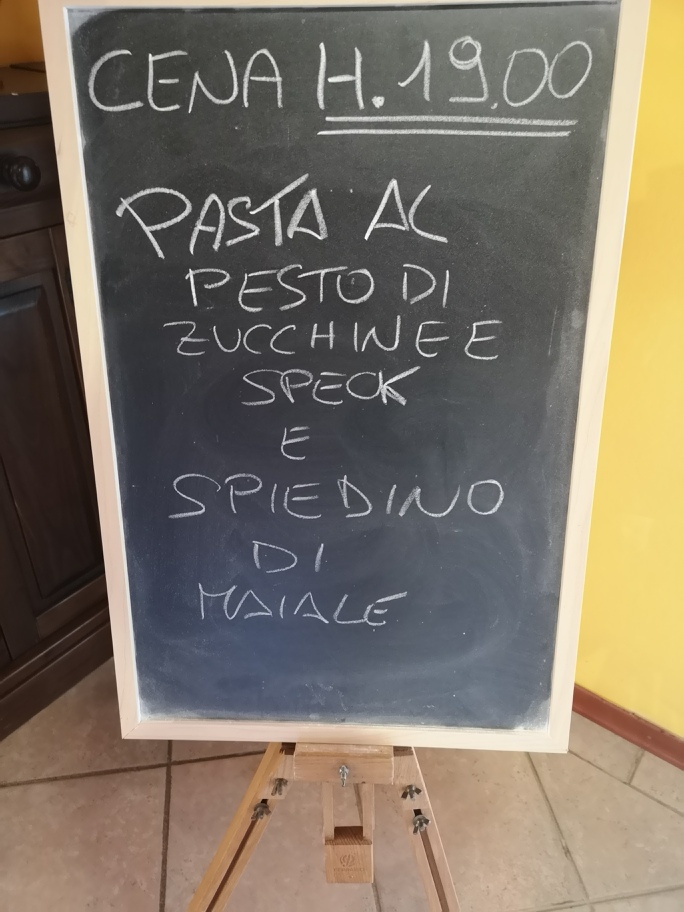 CENA H.19.00
PASTA AL
PESTO DI
ZUCCHINE E
SPECK
E
SPIEDINO
DI
MAIALE